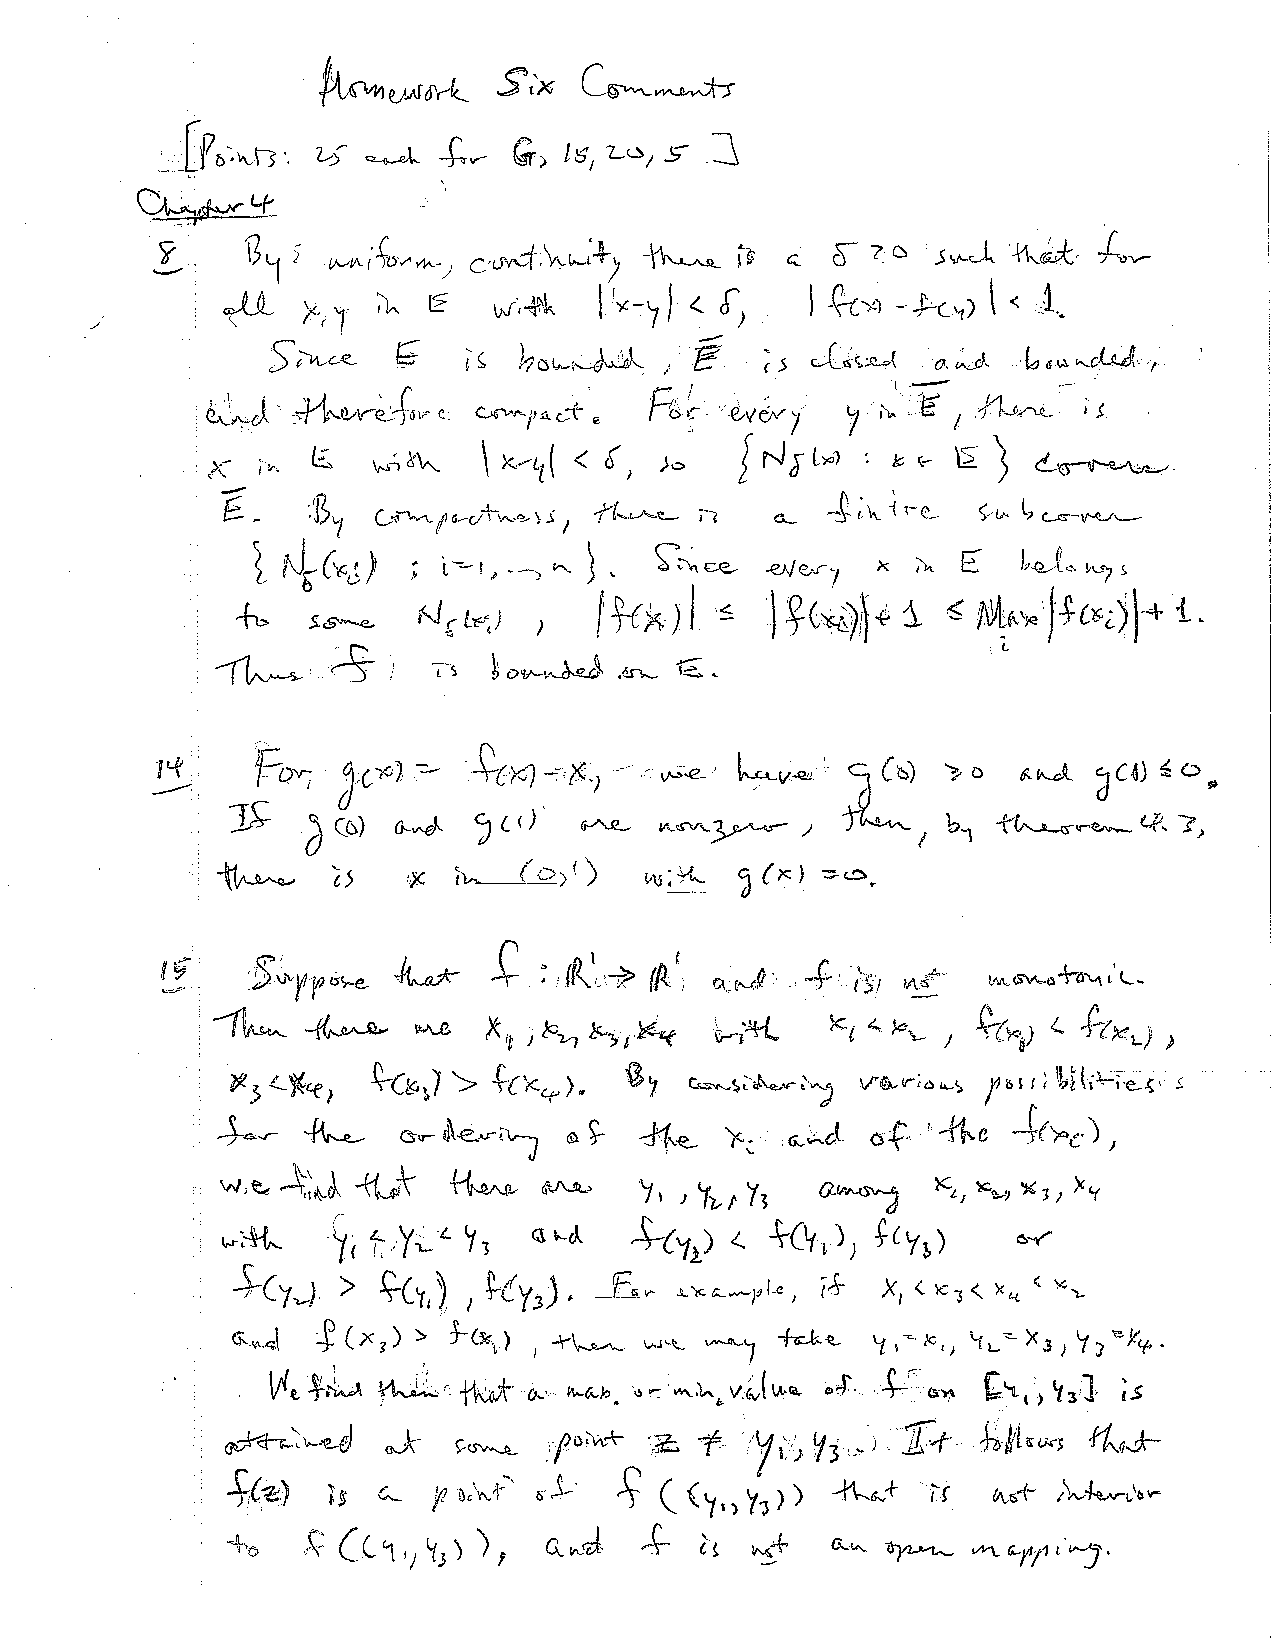 Homework Six Comments
[Points: 25 each for G, 15, 20, 5 ]
Chapter 4
8. By uniform continuity there is a δ > 0 such that for
all x, y in E with |x-y| < δ, |f(x) - f(y)| < 1.
Since E is bounded, E̅ is closed and bounded,
and therefore compact. For every y in E̅, there is
x in E with |x-y| < δ, so {N_δ(x) : x ∈ E} covers
E̅. By compactness, there is a finite subcover
{N_δ(x_i) ; i=1,...,n}. Since every x in E belongs
to some N_δ(x_i), |f(x)| ≤ |f(x_i)| + 1 ≤ Max_i |f(x_i)| + 1.
Thus f is bounded on E.
14 For g(x) = f(x) - x, we have g(0) ≥ 0 and g(1) ≤ 0.
If g(0) and g(1) are nonzero, then, by theorem 4.23,
there is x in (0,1) with g(x) = 0.
15 Suppose that f : R¹ → R¹ and f is not monotonic.
Then there are x₁, x₂, x₃, x₄ with x₁ < x₂, f(x₁) < f(x₂),
x₃ < x₄, f(x₃) > f(x₄). By considering various possibilities
for the ordering of the x_i and of the f(x_i),
we find that there are y₁, y₂, y₃ among x₁, x₂, x₃, x₄
with y₁ < y₂ < y₃ and f(y₂) < f(y₁), f(y₃) or
f(y₂) > f(y₁), f(y₃). For example, if x₁ < x₃ < x₄ < x₂
and f(x₃) > f(x₁), then we may take y₁ = x₁, y₂ = x₃, y₃ = x₄.
We find then that a max. or min. value of f on [y₁, y₃] is
attained at some point z ≠ y₁, y₃. It follows that
f(z) is a point of f((y₁, y₃)) that is not interior
to f((y₁, y₃)), and f is not an open mapping.